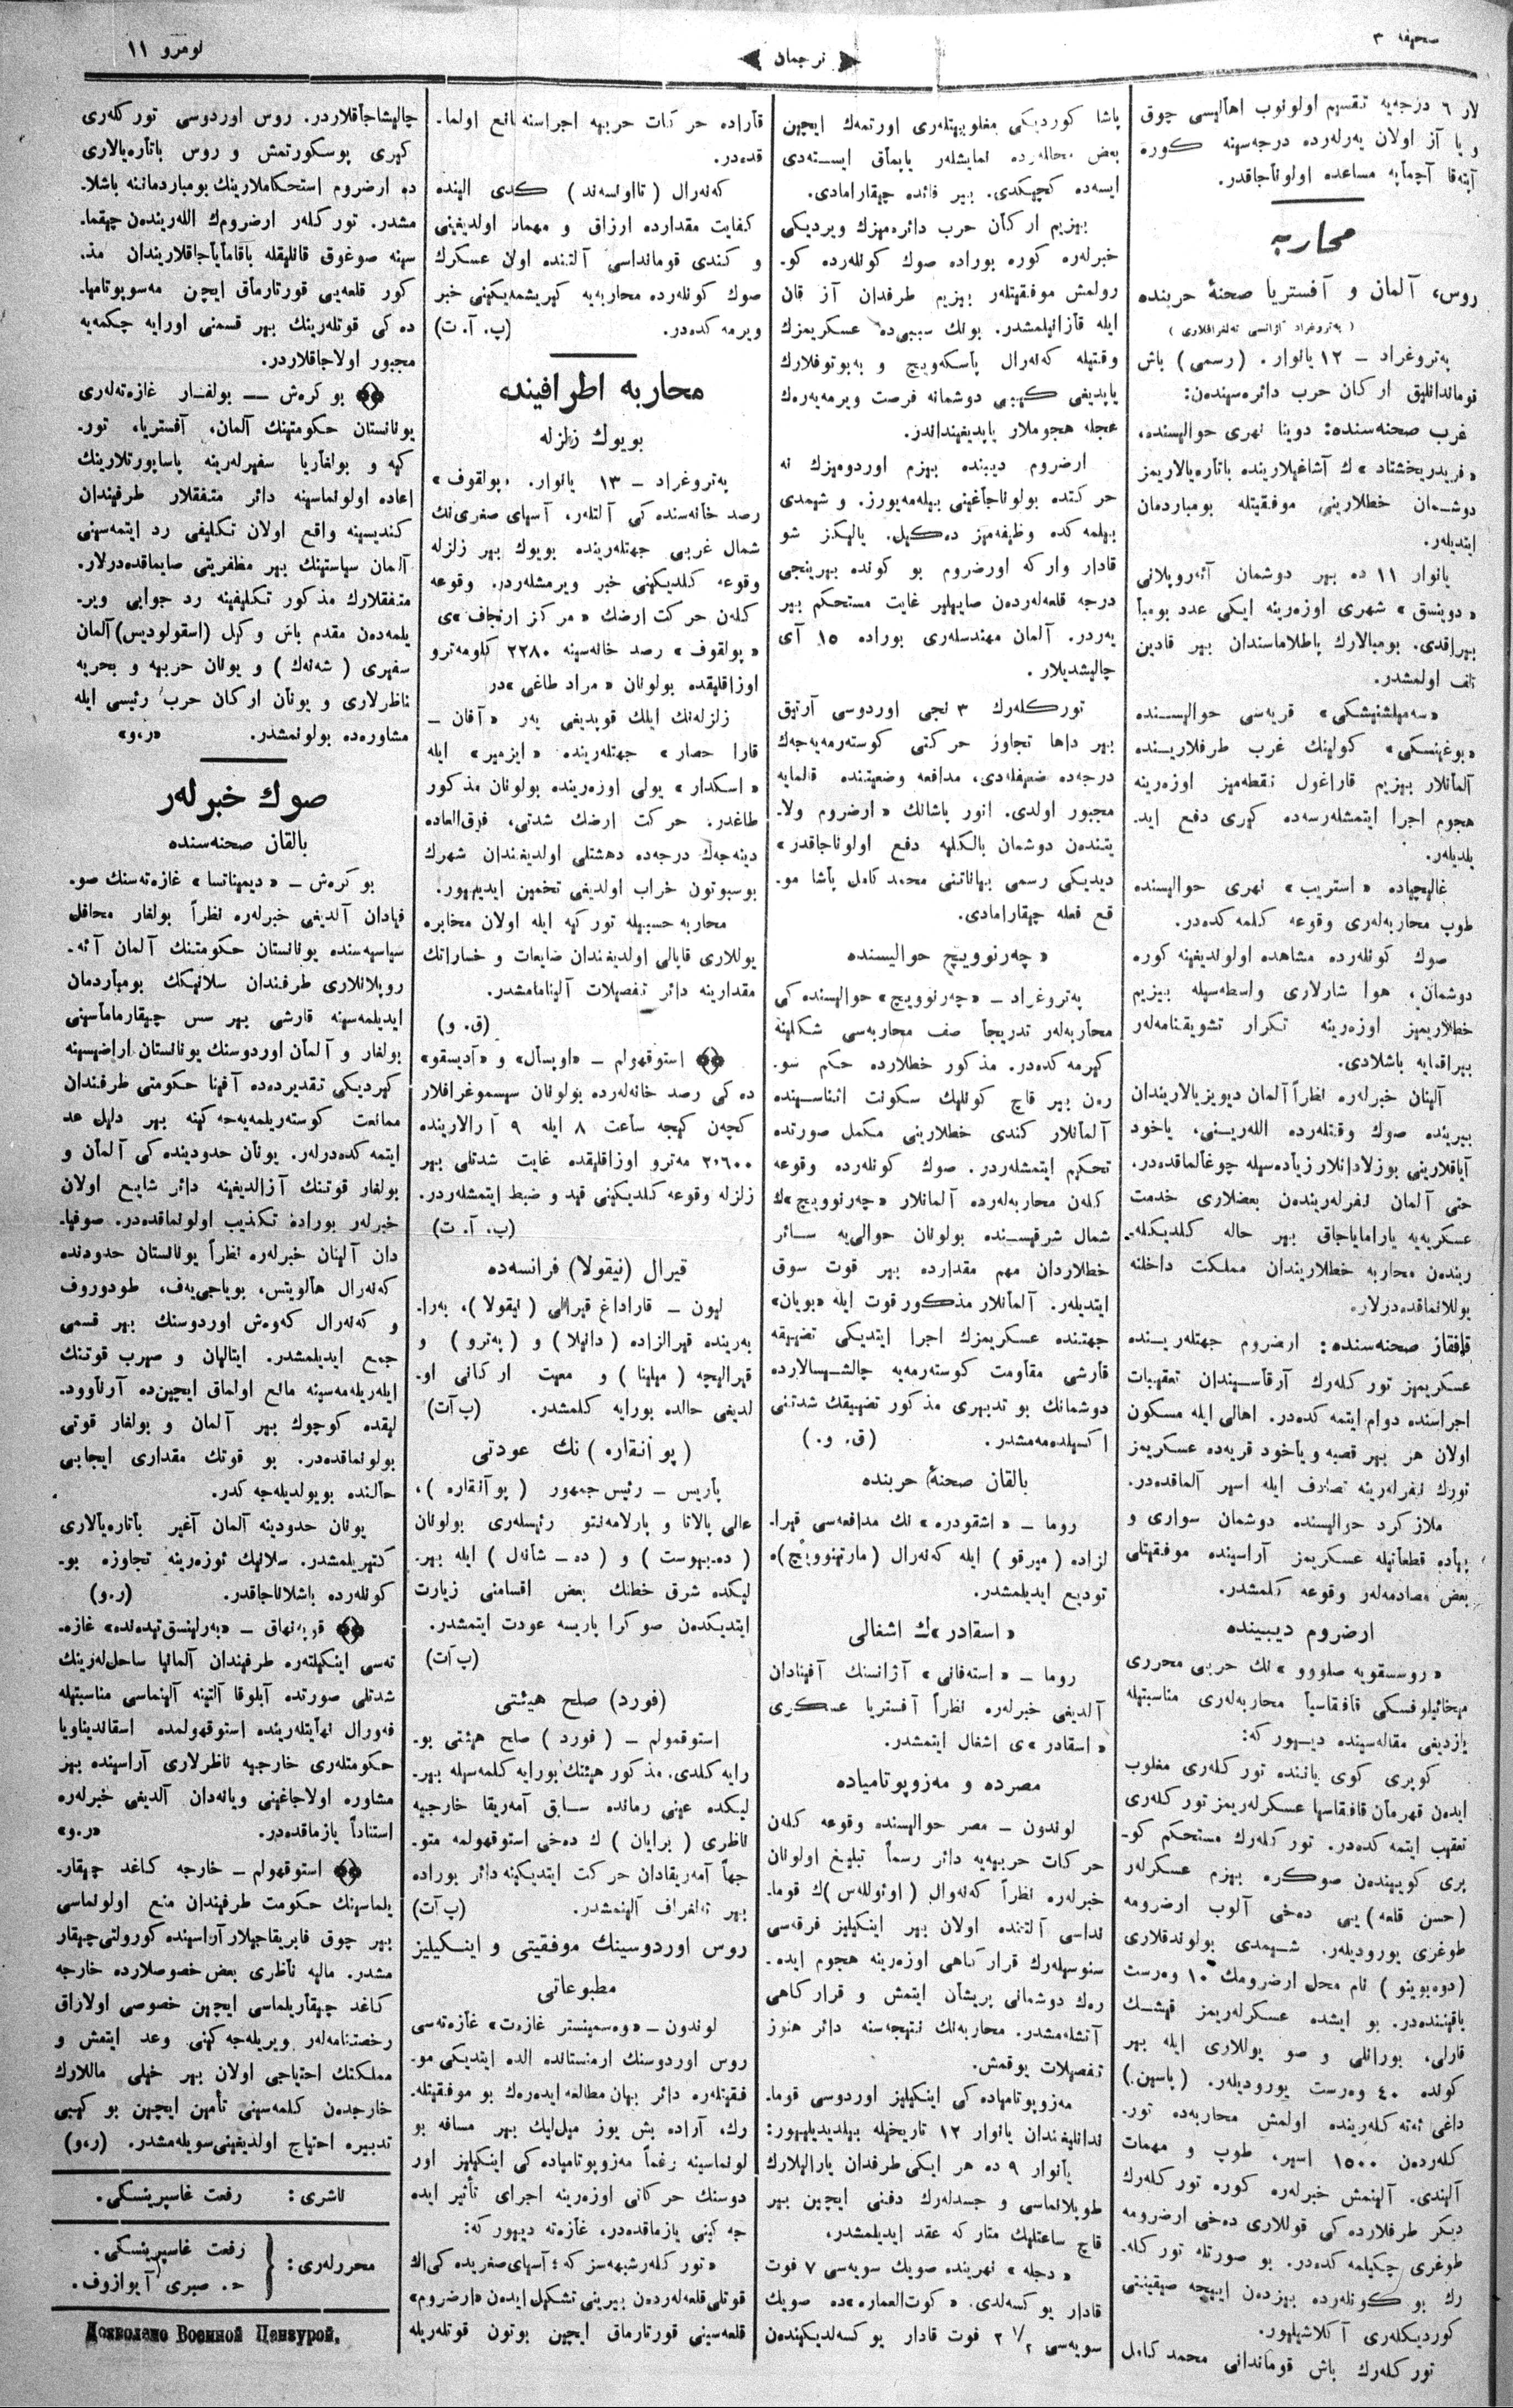 صحیفه ٣
ترجمان
نومرو ١١
لار ٦ درجه‌یه تقسیم اولونوب اهالیسی چوق
و یا آز اولان یەرلەرده درجه‌سینه كوره
آپته‌قا آچمایه مساعده اولوناجاقدر.
محاربه
روس، آلمان و آفستریا صحنۀ حربنده
( پەتروغراد آژانسی تەلغرافلاری )
پەتروغراد – ١٢ یانوار. (رسمی) باش
قوماندانلیق اركان حرب دائره‌سیندن:
غرب صحنه‌سنده: دوینا نهری حوالیسنده،
«فریدریخشتاد»ك آشاغیلارینده باتاره‌یالاریمز
دوشمان خطلارینی موفقیتله بومباردمان
ایتدیلر.
یانوار ١١ ده بیر دوشمان آئەروپلانی
«دوینسق» شهری اوزەرینه ایكی عدد بومبا
بیراقدی. بومبالارك پاطلاماسندان بیر قادین
تلف اولمشدر.
قریه‌سی حوالیسنده
كولینك غرب طرفلارینده
آلمانلار بیزیم قاراغول نقطه‌میز اوزەرینه
هجوم اجرا ایتمشلەرسه‌ده كیری دفع اید-
یلدیلەر.
غالیچیاده «استریب» نهری حوالیسنده
طوپ محاربه‌لەری وقوعه كلمه‌كدەدر.
صوك كونلەرده مشاهده اولوندیغینه كوره
دوشمان، هوا شارلاری واسطه‌سیله بیزیم
خطلاریمیز اوزەرینه تكرار تشویقنامه‌لەر
بیراقمایه باشلادی.
آلینان خبرلەره نظراً آلمان دیویزیالاریندان
بیرینده صوك وقتلەرده اللەرینی، یاخود
آیاقلارینی بوزلادانلار زیاده‌سیله چوغالماقدەدر،
حتی آلمان نفرلەریندن بعضلاری خدمت
عسكریه‌یه یاراماياجاق بیر حاله كلدیكله-
ریندن محاربه خطلاریندان مملكت داخلنه
یوللانماقدەدرلار.
قافقاز صحنه‌سنده: ارضروم جهتلەرینده
عسكریمیز توركلەرك آرقاسیندان تعقیبات
اجراسنده دوام ایتمه‌كدەدر. اهالی ایله مسكون
اولان هر بیر قصبه و یاخود قریەده عسكریمز
تورك نفرلەرینه تصادف ایله اسیر آلماقدەدر.
ملازكرد حوالیسنده دوشمان سواری و
پیاده قطعاتیله عسكریمز آراسینده موفقیتلی
بعض مصادمه‌لەر وقوعه كلمشدر.
ارضروم دیبینده
«روسسقویه صلووو»نك حربی محرری
میخائیلوفسكی قافقاسیا محاربه‌لەری مناسبتیله
یازدیغی مقاله‌سینده دیـیور كه:
كوپری كوی یاننده توركلەری مغلوب
ایدەن قهرمان قافقاسیا عسكرلەریمز توركلەری
تعقیب ایتمه‌كدەدر. توركلەرك مستحكم كو-
پری كوییندەن صوكره بیزم عسكرلەر
(حسن قلعه) یی دەخی آلوب ارضرومه
طوغری یورودیلەر. شیمدی بولوندقلاری
(دوەبوینو) نام محل ارضرومك ١٠ وەرست
یاقیننده‌در. بو ایشده عسكرلەریمز قیشك
قارلی، بورانلی و صو یوللاری ایله بیر
كونده ٤٠ وەرست یورودیلەر. (یاسین.)
داغی ئەته‌كلەرینده اولمش محاربەده تور-
كلەردەن ١٥٠٠ اسیر، طوپ و مهمات
آلیندی. آلینمش خبرلەره كوره توركلەرك
دیكر طرفلارده‌كی قوللاری دەخی ارضرومه
طوغری چكیلمه‌كدەدر. بو صورتله توركله-
رك بو كونلەرده بیزدەن اییجه صیقینتی
كوردیكلەری آكلاشیلیور.
توركلەرك باش قوماندانی محمد كامل
پاشا كوردیكی مغلوبیتلەری اورتمەك ایچین
بعض محاللەرده نمایشلەر یاپماق ایستەدی
ایسەده كچیكدی. بیر فائده چیقارامادی.
بیزیم اركان حرب دائره‌میزك ویردیكی
خبرلەره كوره بوراده صوك كونلەرده كو-
رولمش موفقیتلەر بیزیم طرفدان آز قان
ایله قازانیلمشدر. بونك سببی‌ده عسكریمزك
وقتیله كەنەرال پاسكەویچ و بەبوتوفلارك
یاپدیغی كیبی دوشمانه فرصت ویرمه‌یەرەك
عجله هجوملار یاپدیغینداندر.
ارضروم دیبنده بیزم اوردومیزك نه
حركتده بولوناجاغینی بیله‌مه‌یورز. و شیمدی
بیلمه‌كده وظیفه‌میز دەكیل. یالیكز شو
قادار واركه اورضروم بو كونده بیرینجی
درجه قلعه‌لەردەن صاییلیر غایت مستحكم بیر
یەردر. آلمان مهندسلەری بوراده ١٥ آی
چالیشدیلار.
توركلەرك ٣ نجی اوردوسی آرتیق
بیر داها تجاوز حركتی كوستەرمه‌یەجەك
درجەده ضعیفلەدی، مدافعه وضعیتنده قالمایه
مجبور اولدی. انور پاشانك «ارضروم ولا-
یتندەن دوشمان بالكلیه دفع اولوناجاقدر»
دیدیكی رسمی بیاناتنی محمد كامل پاشا مو-
قع فعله چیقارامادی.
«چەرنوویچ حوالیسنده
پەتروغراد – «چەرنوویچ» حوالیسنده‌كی
محاربه‌لەر تدریجاً صف محاربه‌سی شكلینه
كیرمه‌كدەدر. مذكور خطلارده حكم سو-
رەن بیر قاچ كونلیك سكونت اثناسینده
آلمانلار كندی خطلارینی مكمل صورتده
تحكیم ایتمشلەردر. صوك كونلەرده وقوعه
كلەن محاربه‌لەرده آلمانلار «چەرنوویچ»ك
شمال شرقیسنده بولونان حوالی‌یه سائر
خطلاردان مهم مقدارده بیر قوت سوق
ایتدیلەر. آلمانلار مذكور قوت ایله «بویان»
جهتنده عسكریمزك اجرا ایتدیكی تضییقه
قارشی مقاومت كوستەرمه‌یه چالشیسالارده
دوشمانك بو تدبیری مذكور تضییقك شدتنی
اكسیلده‌مه‌مشدر. (ق. و.)
بالقان صحنۀ حربنده
روما – «اشقودره»نك مدافعه‌سی قیرا-
لزاده (میرقو) ایله كەنەرال (مارتینوویچ)ه
تودیع ایدیلمشدر.
«اسقادر»ك اشغالی
روما – «استەفانی» آژانسنك آفینادان
آلدیغی خبرلەره نظراً آفستریا عسكری
«اسقادر»ی اشغال ایتمشدر.
مصرده و مەزوپوتامیاده
لوندون – مصر حوالیسنده وقوعه كلەن
حركات حربیه‌یه دائر رسماً تبلیغ اولونان
خبرلەره نظراً كەنەرال (اوئوللەس)ك قوما-
نداسی آلتنده اولان بیر اینكیلیز فرقه‌سی
سنوسیلەرك قراركاهی اوزەرینه هجوم ایده-
رەك دوشمانی پریشان ایتمش و قراركاهی
آتشلەمشدر. محاربه‌نك نتیجه‌سنه دائر هنوز
تفصیلات یوقمش.
مەزوپوتامیاده‌كی اینكیلیز اوردوسی قوما-
ندانلیغندان یانوار ١٢ تاریخیله بیلدیدیلیور:
یانوار ٩ ده هر ایكی طرفدان یارالیلارك
طوپلانماسی و جسدلەرك دفنی ایچین بیر
قاچ ساعتلیك متاركه عقد ایدیلمشدر.
«دجله» نهرینده صویك سویه‌سی ٧ فوت
قادار یوكسەلدی. «كوت‌العماره»ده صویك
سویه‌سی ٢ ١/٢ فوت قادار یوكسەلدیكیندەن
قاراده حركات حربیه اجراسنه مانع اولما-
قدەدر.
كەنەرال (تااونسەند) كندی الینده
كفایت مقدارده ارزاق و مهمات اولدیغینی
و كندی قومانداسی آلتنده اولان عسكرك
صوك كونلەرده محاربه‌یه كیریشمه‌دیكینی خبر
ویرمه‌كدەدر. (پ. آ. ت)
محاربه اطرافینده
بویوك زلزله
پەتروغراد – ١٣ یانوار. «پولقوف»
رصد خانه‌سنده‌كی آلتلەر، آسیای صغری‌نك
شمال غربی جهتلەرینده بویوك بیر زلزله
وقوعه كلدیكینی خبر ویرمشلەردر. وقوعه
كلەن حركت ارضك «مركز ارتجاف»ی
«پولقوف» رصد خانه‌سینه ٢٢٨٠ كلومەترو
اوزاقلیقده بولونان «مراد طاغی»در
زلزله‌نك ایلك قوپدیغی یەر «آفان –
قارا حصار» جهتلەرینده «ایزمیر» ایله
«اسكدار» یولی اوزەرینده بولونان مذكور
طاغدر. حركت ارضك شدتی، فوق‌العاده
دینه‌جەك درجەده دهشتلی اولدیغندان شهرك
بوسبوتون خراب اولدیغی تخمین ایدیلیور.
محاربه حسبیله توركیه ایله اولان مخابره
یوللاری قاپالی اولدیغندان ضایعات و خساراتك
مقدارینه دائر تفصیلات آلینامامشدر.
(ق. و)
استوقهولم – «اوپسال» و «آدیسقو»
ده‌كی رصد خانه‌لەرده بولونان سیسموغرافلار
كچەن كیجه ساعت ٨ ایله ٩ آرالارینده
٢،٦٠٠ مەترو اوزاقلیقده غایت شدتلی بیر
زلزله وقوعه كلدیكینی قید و ضبط ایتمشلەردر.
(پ. آ. ت)
قیرال (نیقولا) فرانسه‌ده
لیون – قاراداغ قیرالی (نیقولا)، بەرا-
بەرینده قیرالزاده (دانیلا) و (پەترو) و
قیرالیچه (میلینا) و معیت اركانی او-
لدیغی حالده بورایه كلمشدر. (پ آت)
(پوآنقاره) نك عودتی
پاریس – رئیس جمهور (پوآنقاره)،
عالی پالاتا و پارلامەنتو رئیسلەری بولونان
(ده-بیوست) و (ده – شانەل) ایله بیر-
لیكده شرق خطنك بعض اقسامنی زیارت
ایتدیكدەن صوكرا پاریسه عودت ایتمشدر.
(پ آت)
(فورد) صلح هیئتی
استوقهولم – (فورد) صلح هیئتی بو-
رایه كلدی. مذكور هیئتك بورایه كلمه‌سیله بیر-
لیكده عینی زمانده سابق آمەریقا خارجیه
ناظری (برایان) ك دەخی استوقهولمه متو-
جهاً آمەریقادان حركت ایتدیكینه دائر بوراده
بیر تەلغراف آلینمشدر. (پ آت)
روس اوردوسینك موفقیتی و اینكیلیز
مطبوعاتی
لوندون – «وەسمینستر غازەت» غازەته‌سی
روس اوردوسنك ارمنستانده الده ایتدیكی مو-
فقیتلەره دائر بیان مطالعه ایدەرەك بو موفقیتله-
رك، آراده بش یوز میل‌لیك بیر مسافه بو
لونماسینه رغماً مەزوپوتامیاده‌كی اینكیلیز اور
دوسنك حركاتی اوزەرینه اجرای تأثیر ایده
جه‌كینی یازماقدەدر، غازەته دییور كه:
«توركلەر شبهه‌سز كه؛ آسیای صغریده‌كی الك
قوتلی قلعه‌لەردەن بیرینی تشكیل ایدەن «ارضروم»
قلعه‌سینی قورتارماق ایچین بوتون قوتلەریله
چالیشاجاقلاردر. روس اوردوسی توركلەری
كیری پوسكورتمش و روس باتاره‌یالاری
ده ارضروم استحكاملارینك بومباردماننه باشلا-
مشدر. توركلەر ارضرومك اللەریندەن چیقما-
سینه صوغوق قانلیقله باقامایاجاقلاریندان مذ-
كور قلعه‌یی قورتارماق ایچن مەسوپوتامیا-
ده‌كی قوتلەرینك بیر قسمنی اورایه چكمه‌یه
مجبور اولاجاقلاردر.
بوكرەش –– بولغار غازەته‌لەری
یونانستان حكومتینك آلمان، آفستریا، تور-
كیه و بولغاریا سفیرلەرینه پاساپورتلارینك
اعاده اولونماسینه دائر متفقلار طرفیندان
كندیسینه واقع اولان تكلیفی رد ایتمه‌سینی
آلمان سیاستینك بیر مظفریتی صایماقدەدرلار.
متفقلارك مذكور تكلیفینه رد جوابی ویر-
یلمەدەن مقدم باش وكیل (اسقولودیس) آلمان
سفیری (شەنەك) و یونان حربیه و بحریه
ناظرلاری و یونان اركان حرب رئیسی ایله
مشاورەده بولونمشدر. «ر.و»
صوك خبرلەر
بالقان صحنه‌سنده
بوكرەش – «دیمیناتسا» غازەته‌سنك صو-
فیادان آلدیغی خبرلەره نظراً بولغار محافل
سیاسیه‌سنده یونانستان حكومتنك آلمان آئه-
روپلانلاری طرفندان سلانیكك بومباردمان
ایدیلمه‌سینه قارشی بیر سس چیقارماماسینی
بولغار و آلمان اوردوسنك یونانستان اراضیسینه
كیردیكی تقدیردەده آفینا حكومتی طرفندان
ممانعت كوستەریلمه‌یەجه‌كینه بیر دلیل عد
ایتمه‌كدەدرلەر. یونان حدودینده‌كی آلمان و
بولغار قوتنك آزالدیغینه دائر شایع اولان
خبرلەر بوراده تكذیب اولونماقدەدر. صوفیا-
دان آلینان خبرلەره نظراً یونانستان حدودنده
كەنەرال هالویتس، بویاجی‌یەف، طودوروف
و كەنەرال كەوەش اوردوسنك بیر قسمی
جمع ایدیلمشدر. ایتالیان و صیرب قوتنك
ایلەریلەمه‌سینه مانع اولماق ایچین‌ده آرناوود-
لیقده كوچوك بیر آلمان و بولغار قوتی
بولونماقدەدر. بو قوتك مقداری ایجابی
حالنده بویولدیلەجه‌كدر.
یونان حدودینه آلمان آغیر باتاره‌یالاری
كتیریلمشدر. سلانیك ئوزەرینه تجاوزه بو-
كونلەرده باشلاناجاقدر. (ر.و)
قوپەنهاق – «بەرلینسق‌تیدەنده» غازه-
ته‌سی اینكیلتەره طرفیندان آلمانیا ساحل‌لەرینك
شدتلی صورتده آبلوقا آلتینه آلینماسی مناسبتیله
فەورال نهایتلەرینده استوقهولمده اسقاندیناویا
حكومتلەری خارجیه ناظرلاری آراسینده بیر
مشاوره اولاجاغینی ویانەدان آلدیغی خبرلەره
استناداً یازماقدەدر. «ر.و»
استوقهولم – خارجه كاغد چیقار-
یلماسینك حكومت طرفیندان منع اولونماسی
بیر چوق فابریقاجیلار آراسینده كورولتی چیقار
مشدر. مالیه ناظری بعض خصوصلارده خارجه
كاغد چیقاریلماسی ایچین خصوصی اولاراق
رخصتنامه‌لەر ویریلەجه‌كینی وعد ایتمش و
مملكتك احتیاجی اولان بیر خیلی ماللارك
خارجدەن كلمه‌سینی تأمین ایچین بو كیبی
تدبیره احتیاج اولدیغینی سویلەمشدر. (ر.و)
ناشری: رفعت غاسپرینسكی.
محررلەری: رفعت غاسپرینسكی.
ح. صبری آیوازوف.
Дозволено Военной Цензурой.